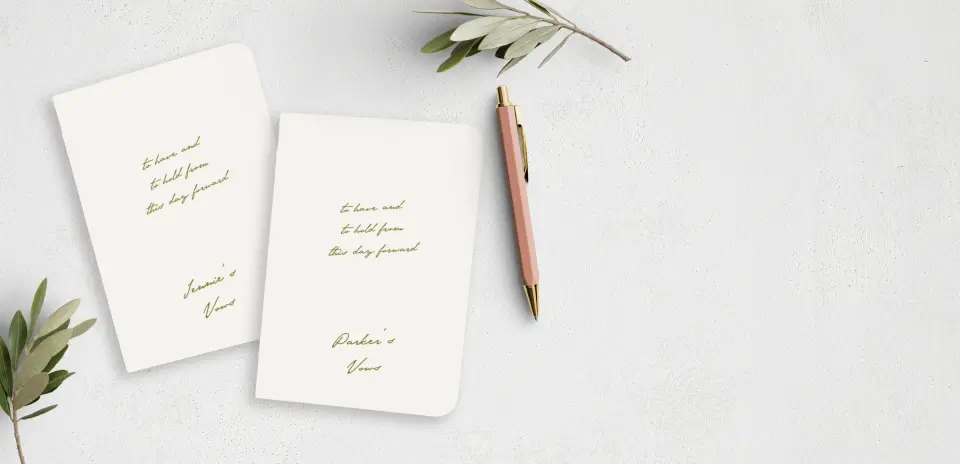 to have and
to hold from
this day forward
Jennie's
Vows
to have and
to hold from
this day forward
Parker's
Vows